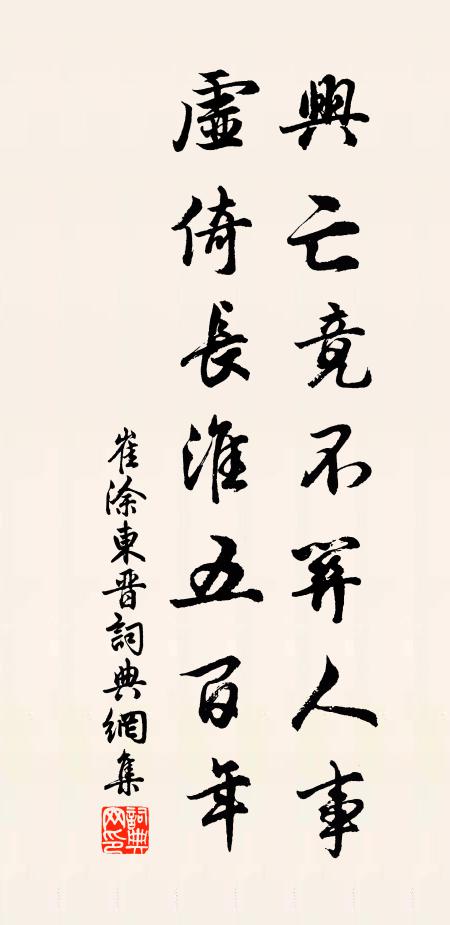 興亡竟不關人事
虛倚長淮五百年
崔涂東晋詞典網集
詞典網印